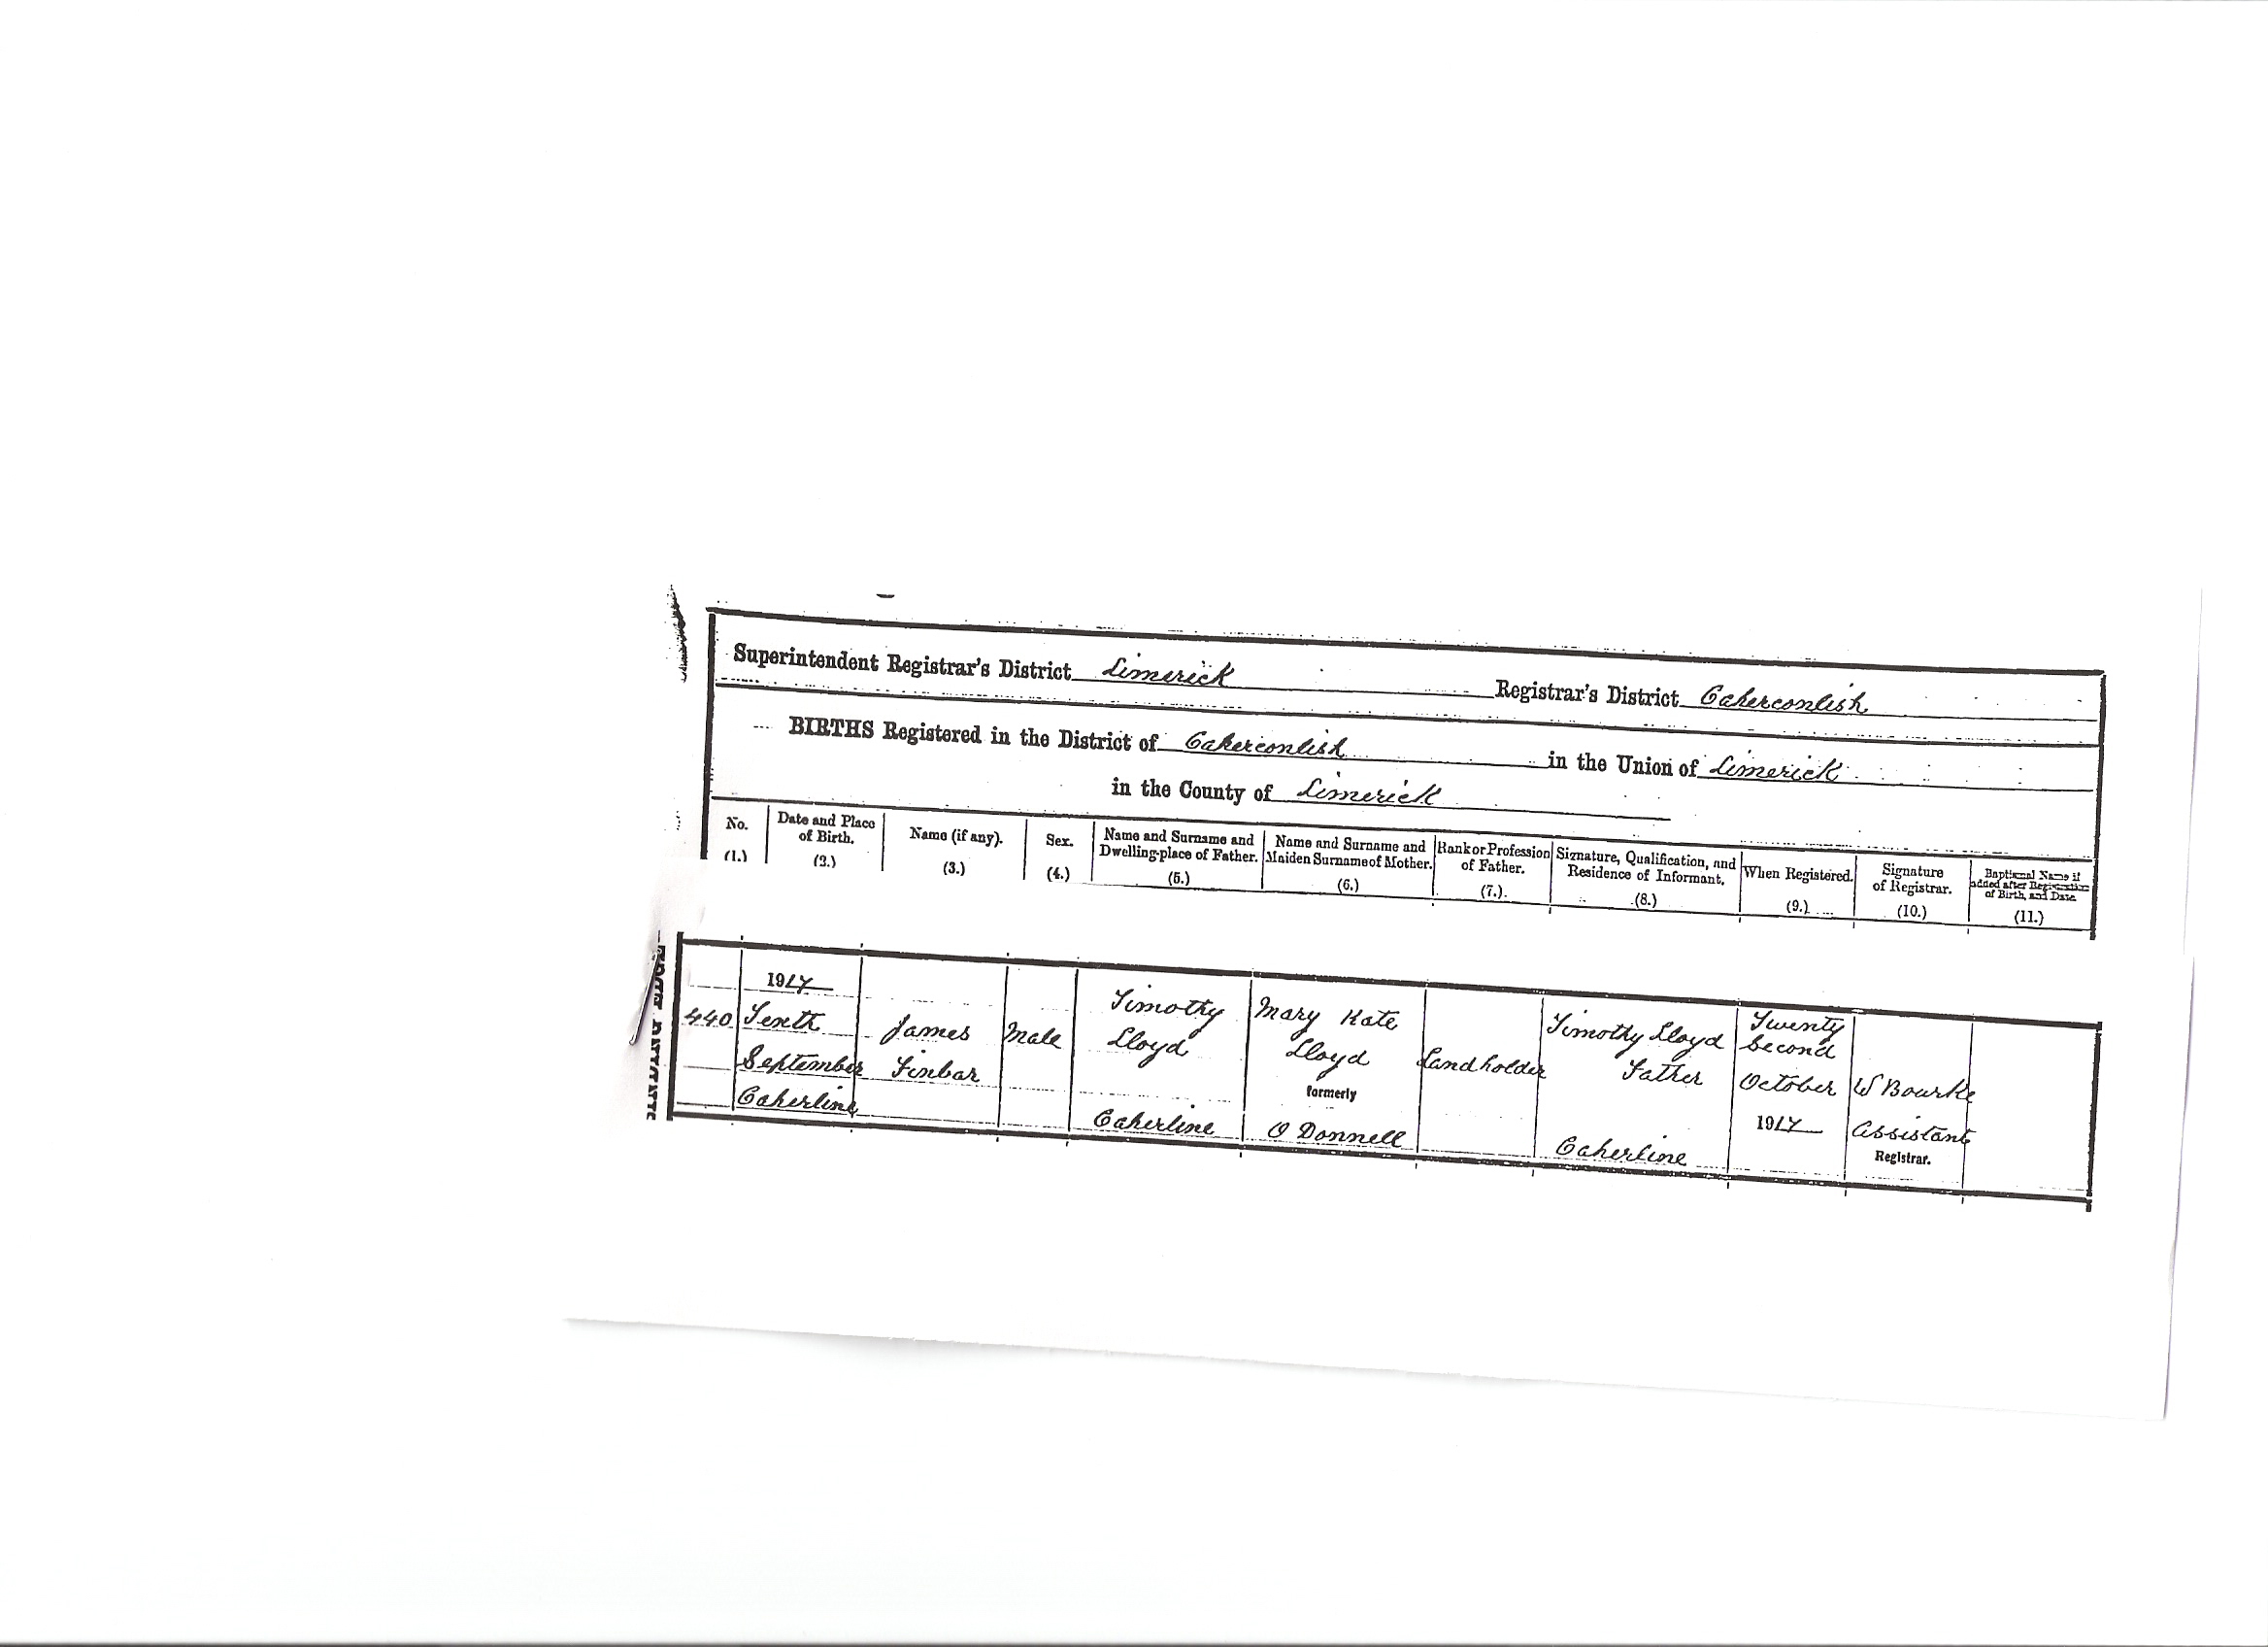 Superintendent Registrar's District Limerick Registrar's District Caherconlish
BIRTHS Registered in the District of Caherconlish in the Union of Limerick
in the County of Limerick
No. (1.)
Date and Place of Birth. (2.)
Name (if any). (3.)
Sex. (4.)
Name and Surname and Dwelling-place of Father. (5.)
Name and Surname and Maiden Surname of Mother. (6.)
Rank or Profession of Father. (7.)
Signature, Qualification, and Residence of Informant. (8.)
When Registered. (9.)
Signature of Registrar. (10.)
Baptismal Name if added after Registration of Birth, and Date. (11.)
440
1917
Tenth
September
Caherline
James
Finbar
Male
Timothy
Lloyd
Caherline
Mary Kate
Lloyd
formerly
O Donnell
Landholder
Timothy Lloyd
Father
Caherline
Twenty
Second
October
1917
W Bourke
Assistant
Registrar.